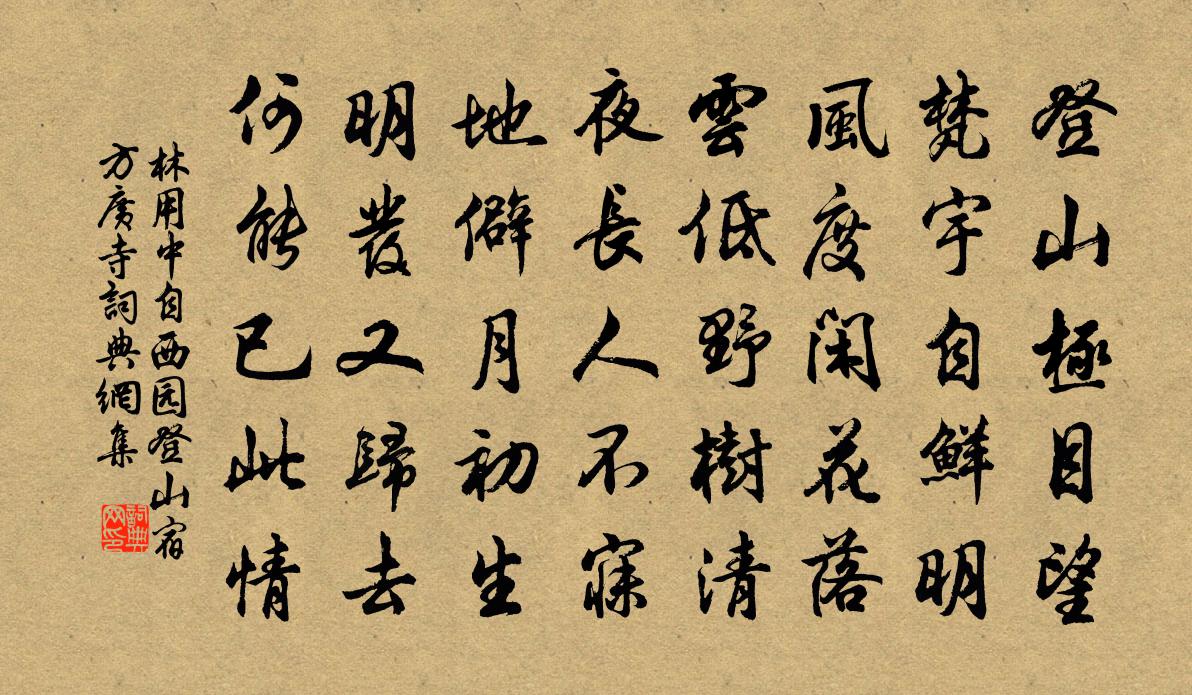 登山極目望
梵宇自鮮明
風度閑花落
雲低野樹清
夜長人不寐
地僻月初生
明發又歸去
何能已此情
林用中自西园登山宿
方廣寺詞典網集
詞典网印